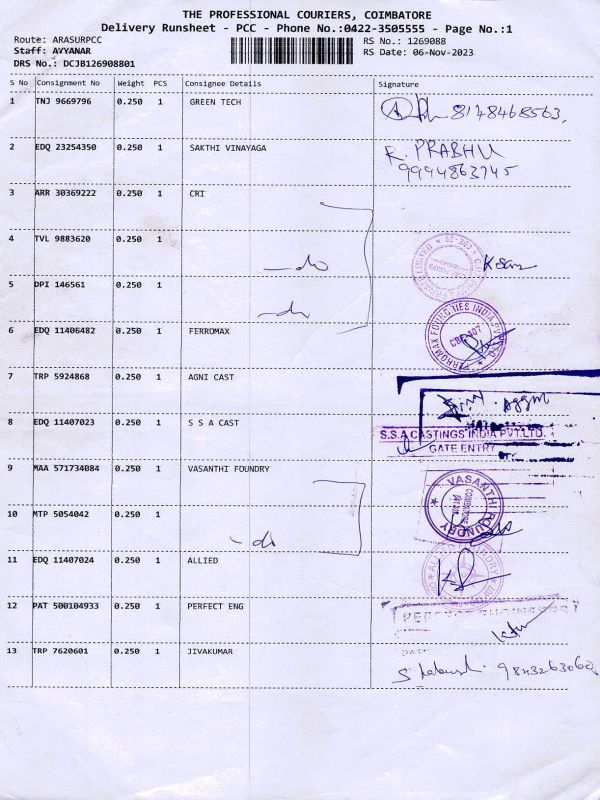 THE PROFESSIONAL COURIERS, COIMBATORE
Delivery Runsheet - PCC - Phone No.:0422-3505555 - Page No.:1
Route: ARASURPCC
RS No.: 1269088
Staff: AYYANAR
RS Date: 06-Nov-2023
DRS No.: DCJB126908801
S No Consignment No Weight PCS Consignee Details Signature
1 TNJ 9669796 0.250 1 GREEN TECH 8148468563.
2 EDQ 23254350 0.250 1 SAKTHI VINAYAGA R. PRABHU
9994863745
3 ARR 30369222 0.250 1 CRI
4 TVL 9883620 0.250 1
-do
5 DPI 146561 0.250 1
-do
6 EDQ 11406482 0.250 1 FERROMAX FERROMAX FOUNDRIES INDIA PVT LTD
CBE-407
7 TRP 5924868 0.250 1 AGNI CAST
8 EDQ 11407023 0.250 1 S S A CAST S.S.A CASTINGS INDIA PVT.LTD.
GATE ENTRY
9 MAA 571734084 0.250 1 VASANTHI FOUNDRY VASANTHI FOUNDRY
COIMBATORE
10 MTP 5054042 0.250 1
-do
11 EDQ 11407024 0.250 1 ALLIED
12 PAT 500104933 0.250 1 PERFECT ENG
13 TRP 7620601 0.250 1 JIVAKUMAR 9843263060